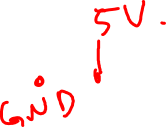 5V.
GND